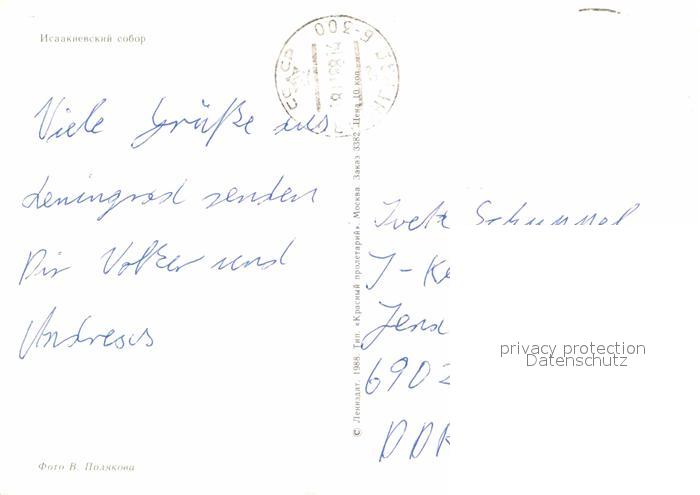 Исаакиевский собор
Viele Grüße aus
Leningrad senden
Dir Volker und
Andreas
Фото В. Полякова
© Лениздат. 1988. Тип. «Красный пролетарий». Москва. Заказ 3382. Цена 10 коп.
6-300
J-Ke
Jena
6902
DDR
privacy protection
Datenschutz